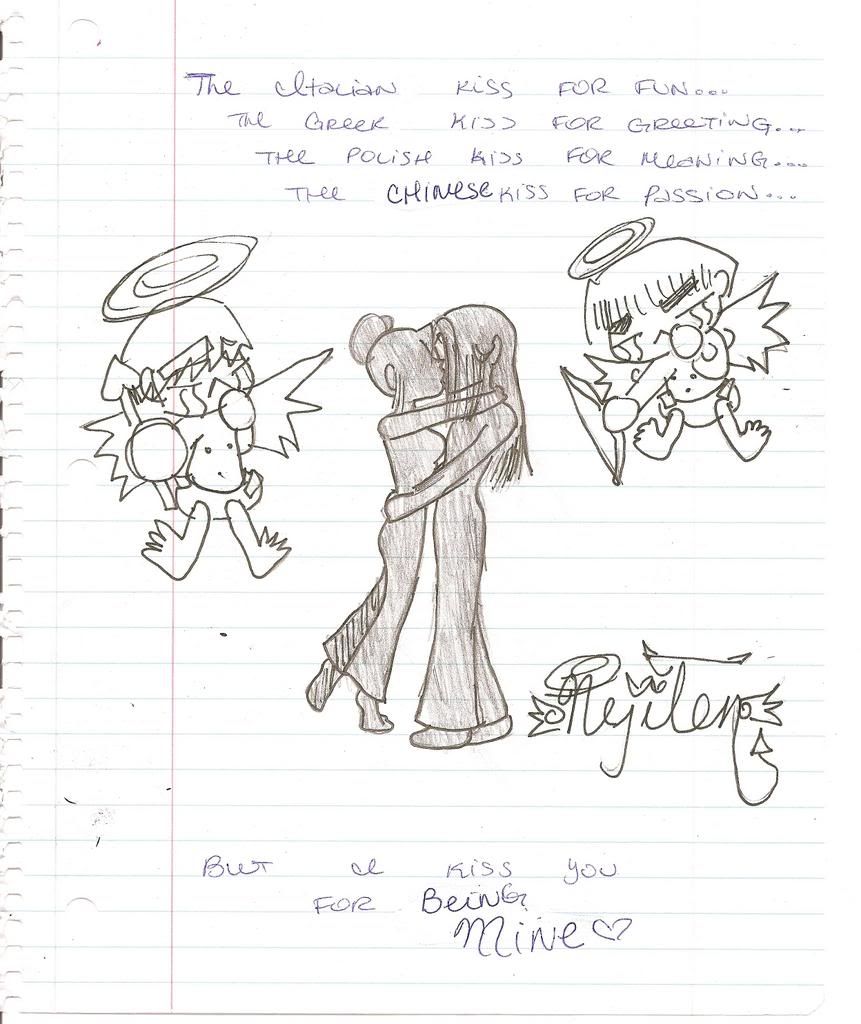 The Italian kiss for fun...
The Greek kiss for greeting...
The Polish kiss for meaning...
The Chinese kiss for passion...
But I kiss you
for being
Mine